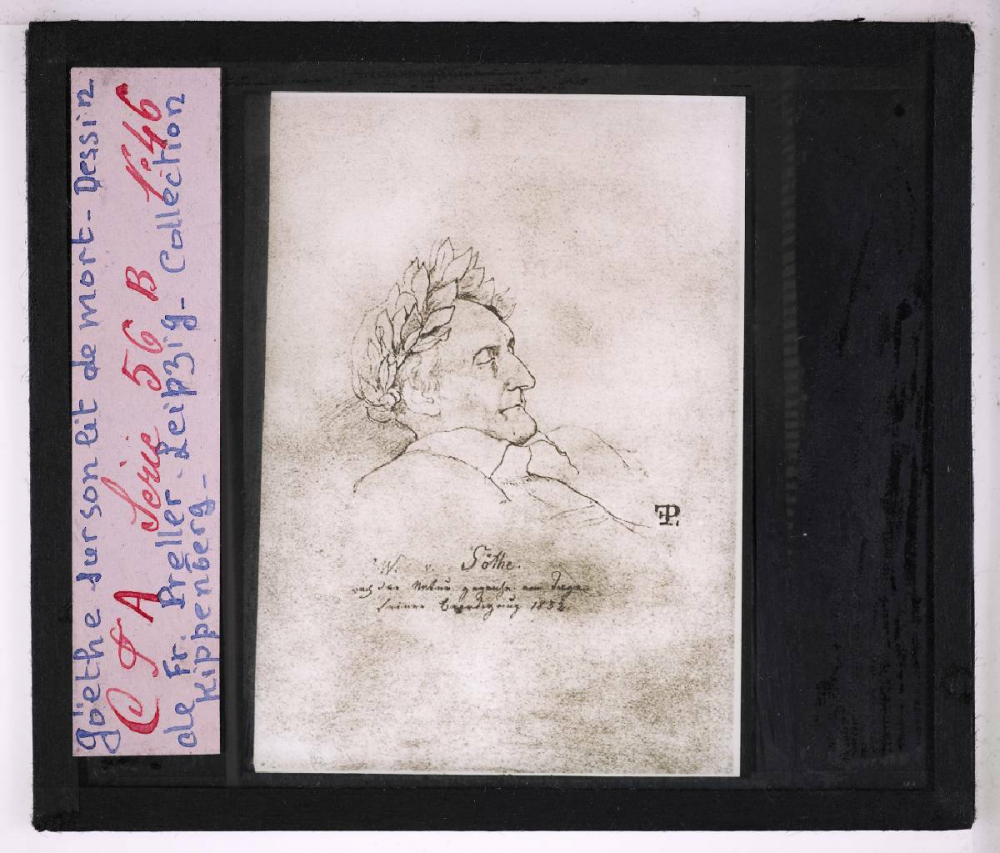 Göethe sur son lit de mort - Dessin
C T A Série 56 B N° 46
de Fr. Preller - Leipzig - Collection
Kippenberg -
FP.
W. v. Göthe.
nach der Natur gezeichn. am Tage
seiner Beerdigung 1832